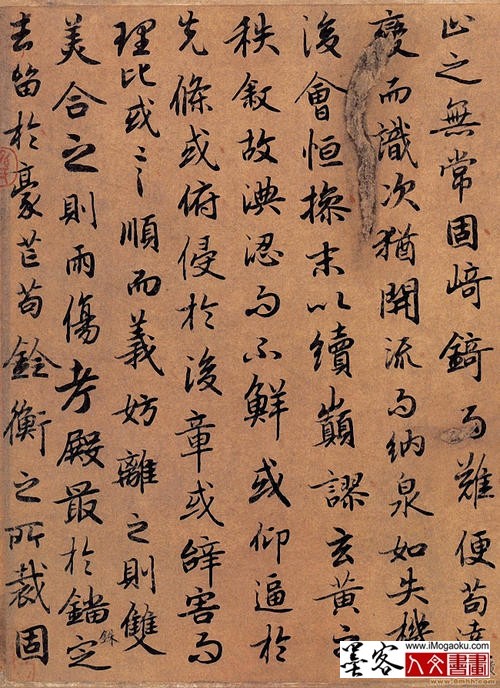 止之無常固崎錡而難便苟達
變而識次猶開流而納泉如失機
後會恒操末以續巔謬玄黃之
秩敘故淟涊而不鮮或仰逼於
先條或俯侵於後章或辭害而
理比或言順而義妨離之則雙
美合之則兩傷考殿最於錙銖定
去留於豪芒苟銓衡之所裁固
墨客
www.iMogaoku.com
人文書畫